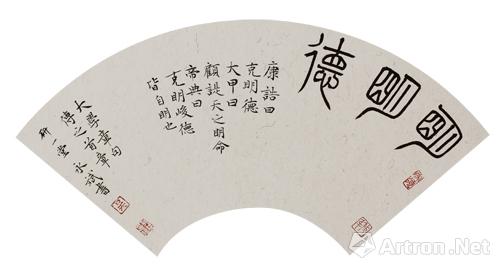 明明德
康誥曰
克明德
大甲曰
顧諟天之明命
帝典曰
克明峻德
皆自明也
大學章句
傳之首章
研一堂永斌書
Artron.Net